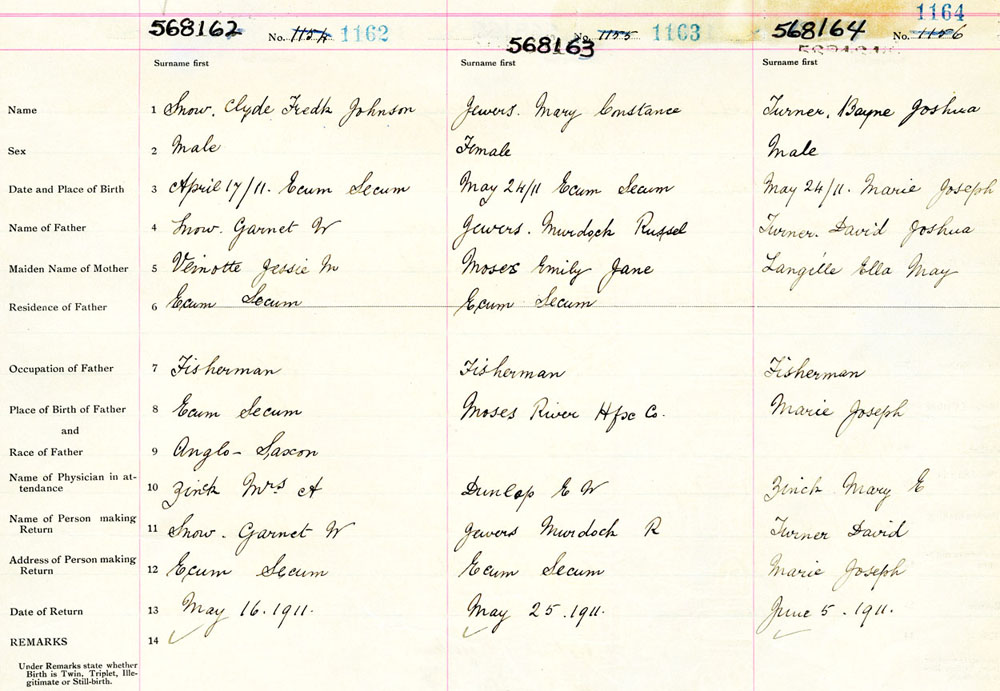 568162 No. 1154 1162 568163 No. 1155 1163 568164 No. 1156 1164
Surname first Surname first Surname first
Name 1 Snow. Clyde Fredk Johnson Jewers. Mary Constance Turner, Bayne Joshua
Sex 2 Male Female Male
Date and Place of Birth 3 April 17/11. Ecum Secum May 24/11 Ecum Secum May 24/11. Marie Joseph
Name of Father 4 Snow. Garnet W Jewers. Murdock Russel Turner. David Joshua
Maiden Name of Mother 5 Veinotte Jessie M Moses Emily Jane Langille Ella May
Residence of Father 6 Ecum Secum Ecum Secum
Occupation of Father 7 Fisherman Fisherman Fisherman
Place of Birth of Father 8 Ecum Secum Moses River Hfx Co. Marie Joseph
and
Race of Father 9 Anglo-Saxon
Name of Physician in at-
tendance 10 Zinck Mrs A Dunlap E W Zinck Mary E
Name of Person making
Return 11 Snow. Garnet W Jewers Murdock R Turner David
Address of Person making
Return 12 Ecum Secum Ecum Secum Marie Joseph
Date of Return 13 May 16. 1911. May 25. 1911. June 5. 1911.
REMARKS 14
Under Remarks state whether
Birth is Twin, Triplet, Ille-
gitimate or Still-birth.